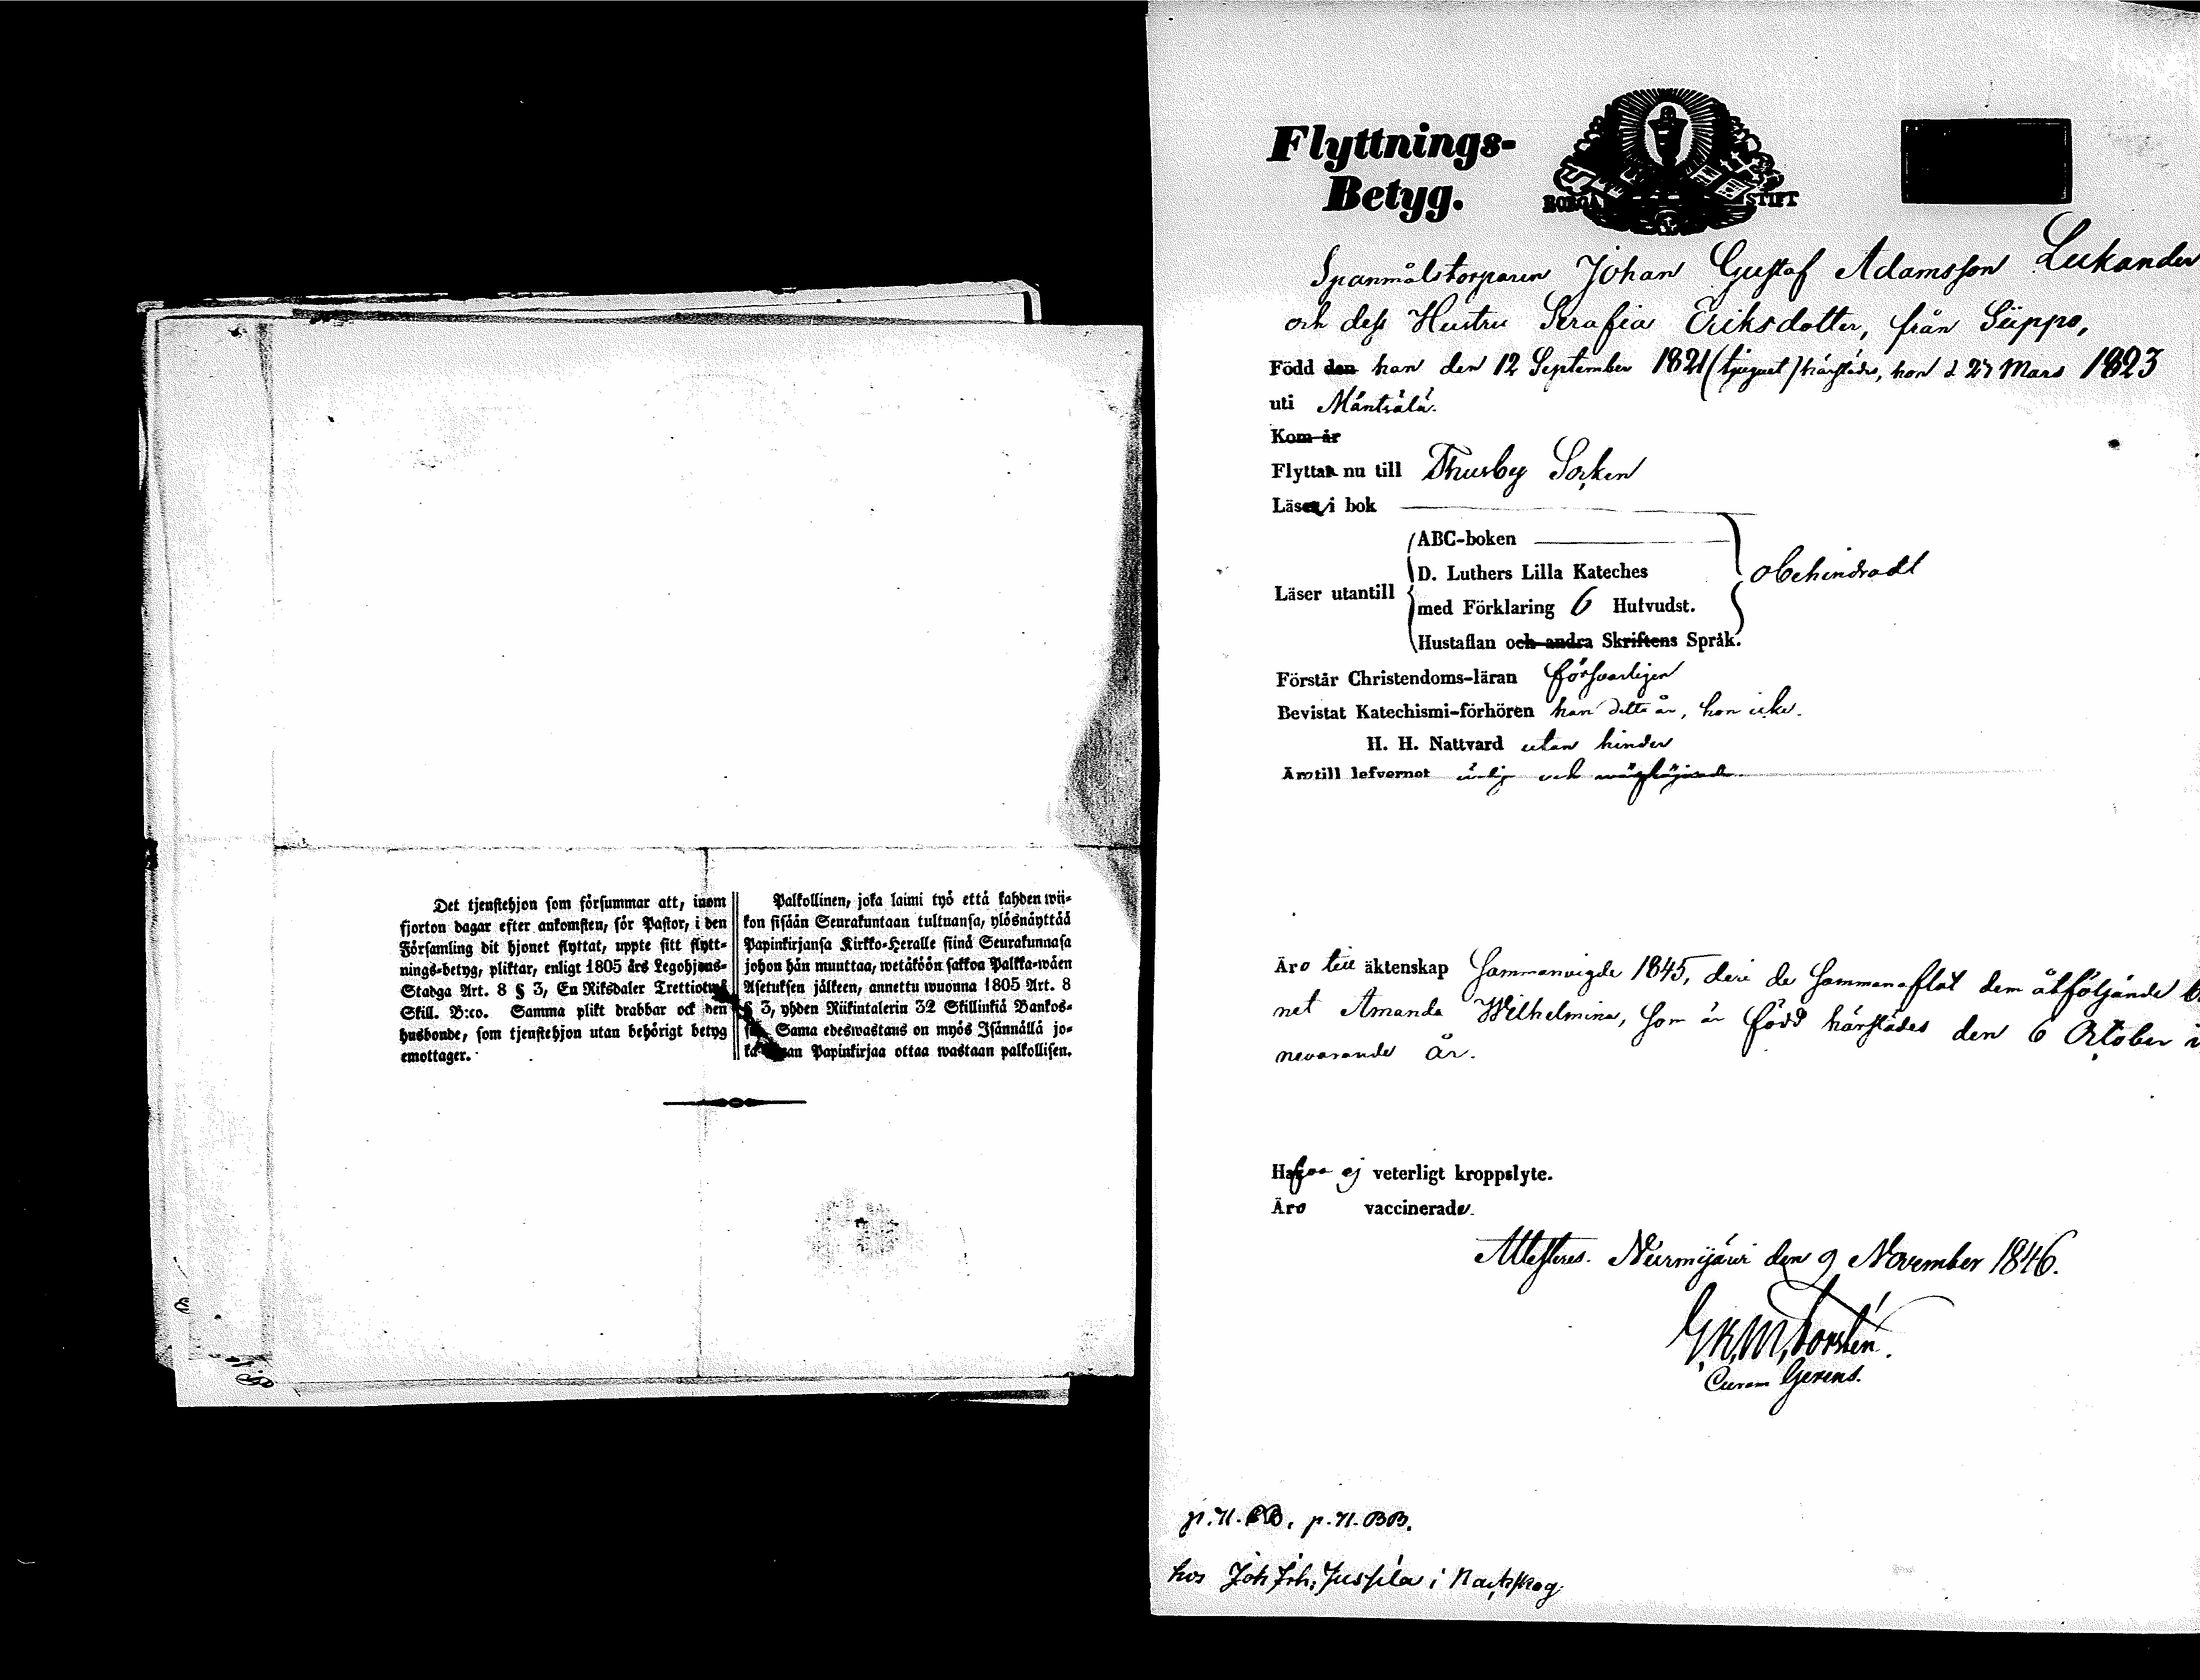 Det tjenstehjon som försummar att, inom
fjorton dagar efter ankomsten, för Pastor, i den
Församling dit hjonet flyttat, uppte sitt flytt-
nings-betyg, pliktar, enligt 1805 års Legohjons-
Stadga Art. 8 § 3, En Riksdaler Trettiotwå
Skill. B:co. Samma plikt drabbar ock den
husbonde, som tjenstehjon utan behörigt betyg
emottager.
Palkollinen, joka laimi työ että kahden wii-
kon sisään Seurakuntaan tultuansa, ylösnäyttää
Papinkirjansa Kirkko-Heralle siinä Seurakunnasa
johon hän muuttaa, wetäköön sakkoa Palkka-wäen
Asetuksen jälkeen, annettu wuonna 1805 Art. 8
§ 3, yhden Riikintalerin 32 Skillinkiä Bankos-
Sama edeswastaus on myös Isännällä jo-
ka Papinkirjaa ottaa wastaan palkollisen.
Flyttnings-
Betyg.
BORGÅ STIFT
Spanmålstorparen Johan Gustaf Adamsson Lukander
och dess Hustru Serafia Eriksdotter, från Siippo,
Född den han den 12 September 1821 (tjuguett) härstädes, hon d 27 Mars 1823
uti Mäntsälä.
Kom år
Flyttar nu till Thusby Socken
Läser i bok
ABC-boken
D. Luthers Lilla Kateches
Läser utantill
med Förklaring 6 Hufvudst.
obehindradt
Hustaflan och andra Skriftens Språk.
Förstår Christendoms-läran försvarligen
Bevistat Katechismi-förhören han detta år, hon icke.
H. H. Nattvard utan hinder
Äro till lefvernet ärlig och
Äro till äktenskap sammanvigde 1845, deri de sammanaflat dem åtföljande
net Amanda Wilhelmina, som är född härstädes den 6 October i
nevarande år.
Hafva ej veterligt kroppslyte.
Äro vaccinerade.
Attesteras. Nurmijärvi den 9 November 1846.
G. K. M. Forstén.
Curam Gerens.
p. N. BB. p. N. BB.
hos Joh Joh: Jussila i Nackskog